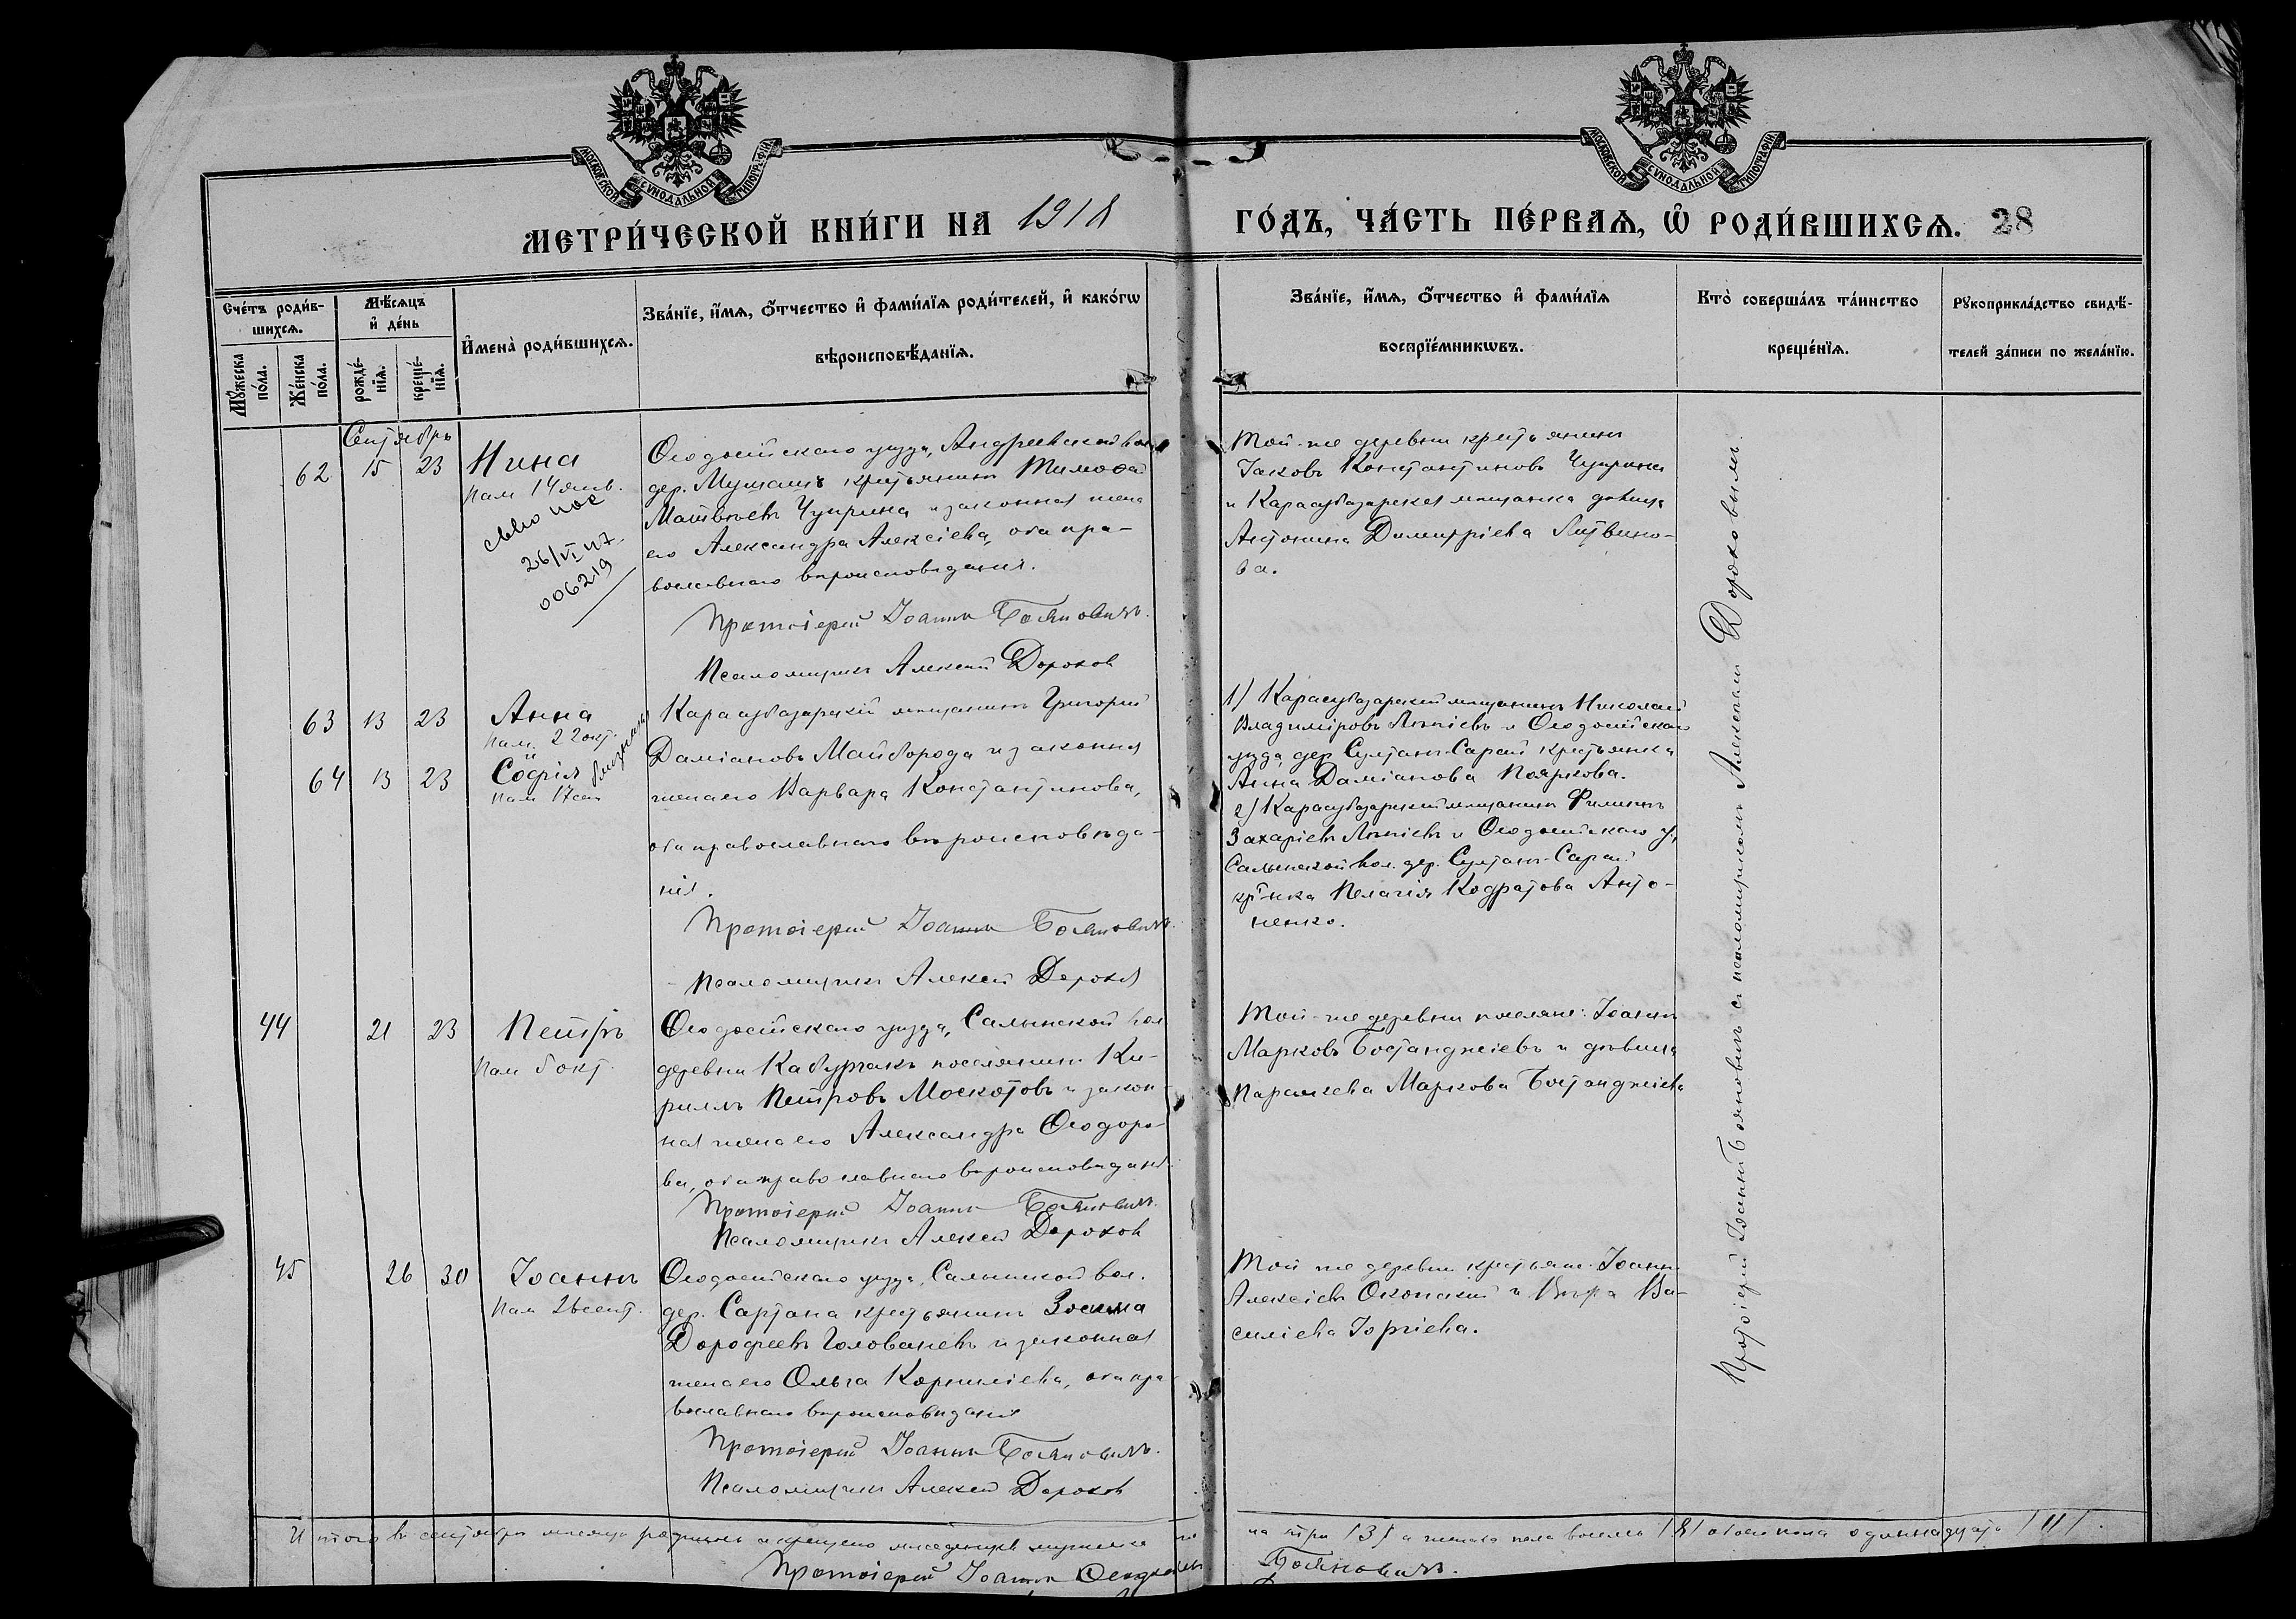 МОСКОВСКОЙ СѴНОДАЛЬНОЙ ТИПОГРАФІИ
МОСКОВСКОЙ СѴНОДАЛЬНОЙ ТИПОГРАФІИ
МЕТРИ́ЧЕСКОЙ КНИ́ГИ НА 1918 ГО́ДЪ, ЧА́СТЬ ПЕ́РВАѦ, Ѡ҆ РОДИ́ВШИХСѦ. 28
Сче́тъ роди́в-
шихсѧ.
Мꙋ́жеска по́ла.
Же́нска по́ла.
Мѣ́сѧцъ
и҆ де́нь
рожде́-
нїѧ.
креще́-
нїѧ.
И҆мена̀ роди́вшихсѧ.
Зва́нїе, и҆́мѧ, ѻ҆́тчество и҆ фами́лїѧ роди́телей, и҆ како́гѡ
вѣроисповѣ́данїѧ.
Зва́нїе, и҆́мѧ, ѻ҆́тчество и҆ фами́лїѧ
воспрїе́мникѡвъ.
Кто̀ соверша́лъ та́инство
креще́нїѧ.
Рꙋкоприкла́дство свидѣ́-
телей за́писи по жела́нїю.
Сентябрь
62 15 23 Нина
Пам 14 янв.
26/VI 47
006219
Ѳеодосійскаго уѣзда, Андреевской вол.
дер. Мушашъ крестьянинъ Тимоѳей
Матвѣевъ Чуприна и законная жена
его Александра Алексіева, оба пра-
вославнаго вѣроисповѣданія.
Протоіерей Іоаннъ Бояновичъ.
Псаломщикъ Алексей Дорохов
Той-же деревни крестьянинъ
Іаковъ Константиновъ Чуприна
и Карасубазарская мѣщанка дѣвица
Антонина Димитріева Литвино-
ва.
63 13 23 Анна
Пам. 22 окт.
и близнецы
64 13 23 Софія
Пам 17 сен
Карасубазарскій мѣщанинъ Григорій
Даміановъ Майборода и законная
жена его Варвара Константинова,
оба православнаго вѣроисповѣда-
нія.
Протоіерей Іоаннъ Бояновичъ.
Псаломщикъ Алексей Дорохов
1) Карасубазарскій мѣщанинъ Николай
Владиміровъ Лѣпіевъ и Ѳеодосійскаго
уѣзда дер. Султан-Сарай крестьянка
Анна Даміанова Пояркова.
2) Карасубазарскій мѣщанинъ Филиппъ
Захаріевъ Лѣпіевъ и Ѳеодосійскаго у,
Салынской вол. дер. Султан-Сарай
кр-нка Пелагія Кодратова Анто-
ненко.
44 21 23 Петръ
Пам 5 окт.
Ѳеодосійскаго уѣзда, Салынской вол
деревни Кабурчакъ поселянинъ Ки-
риллъ Петровъ Москотовъ и закон-
ная жена его Александра Ѳеодоро-
ва, оба православнаго вѣроисповѣданія.
Протоіерей Іоаннъ Бояновичъ.
Псаломщикъ Алексей Дорохов
Той-же деревни поселяне: Іоаннъ
Марковъ Бостанджіевъ и дѣвица
Параскева Маркова Бостанджіева
45 26 30 Іоаннъ
Пам 26 сент.
Ѳеодосійскаго уѣзда, Салынской вол.
дер. Сартана крестьянинъ Зосима
Дорофеевъ Голованевъ и законная
жена его Ольга Корниліева, оба пра-
вославнаго вѣроисповѣданія
Протоіерей Іоаннъ Бояновичъ.
Псаломщикъ Алексей Дорохов
Той же деревни крестьяне: Іоаннъ
Алексіевъ Оконскій и Вѣра Ва-
силіева Іоргіева.
Протоіерей Іоаннъ Бояновичъ съ псаломщикомъ Алексѣемъ Дороховымъ.
Итого въ сентябрѣ мѣсяцѣ родилось и крещено младенцевъ мужеска по
ла три /3/ а женска пола восемь /8/ обоего пола одиннадцать /11/.
Протоіерей Іоаннъ
Бояновичъ.